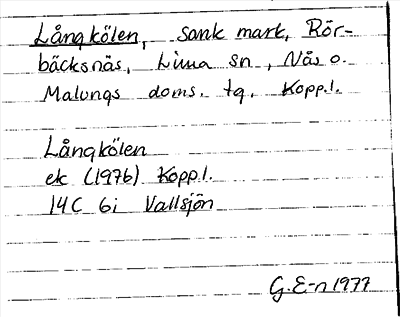 Långkölen, sank mark, Rör-
bäcksnäs, Lima sn, Nås o.
Malungs doms. tg, Kopp.l.
Långkölen
ek (1976) Kopp.l.
14C 6i Vallsjön
G.E-n 1977